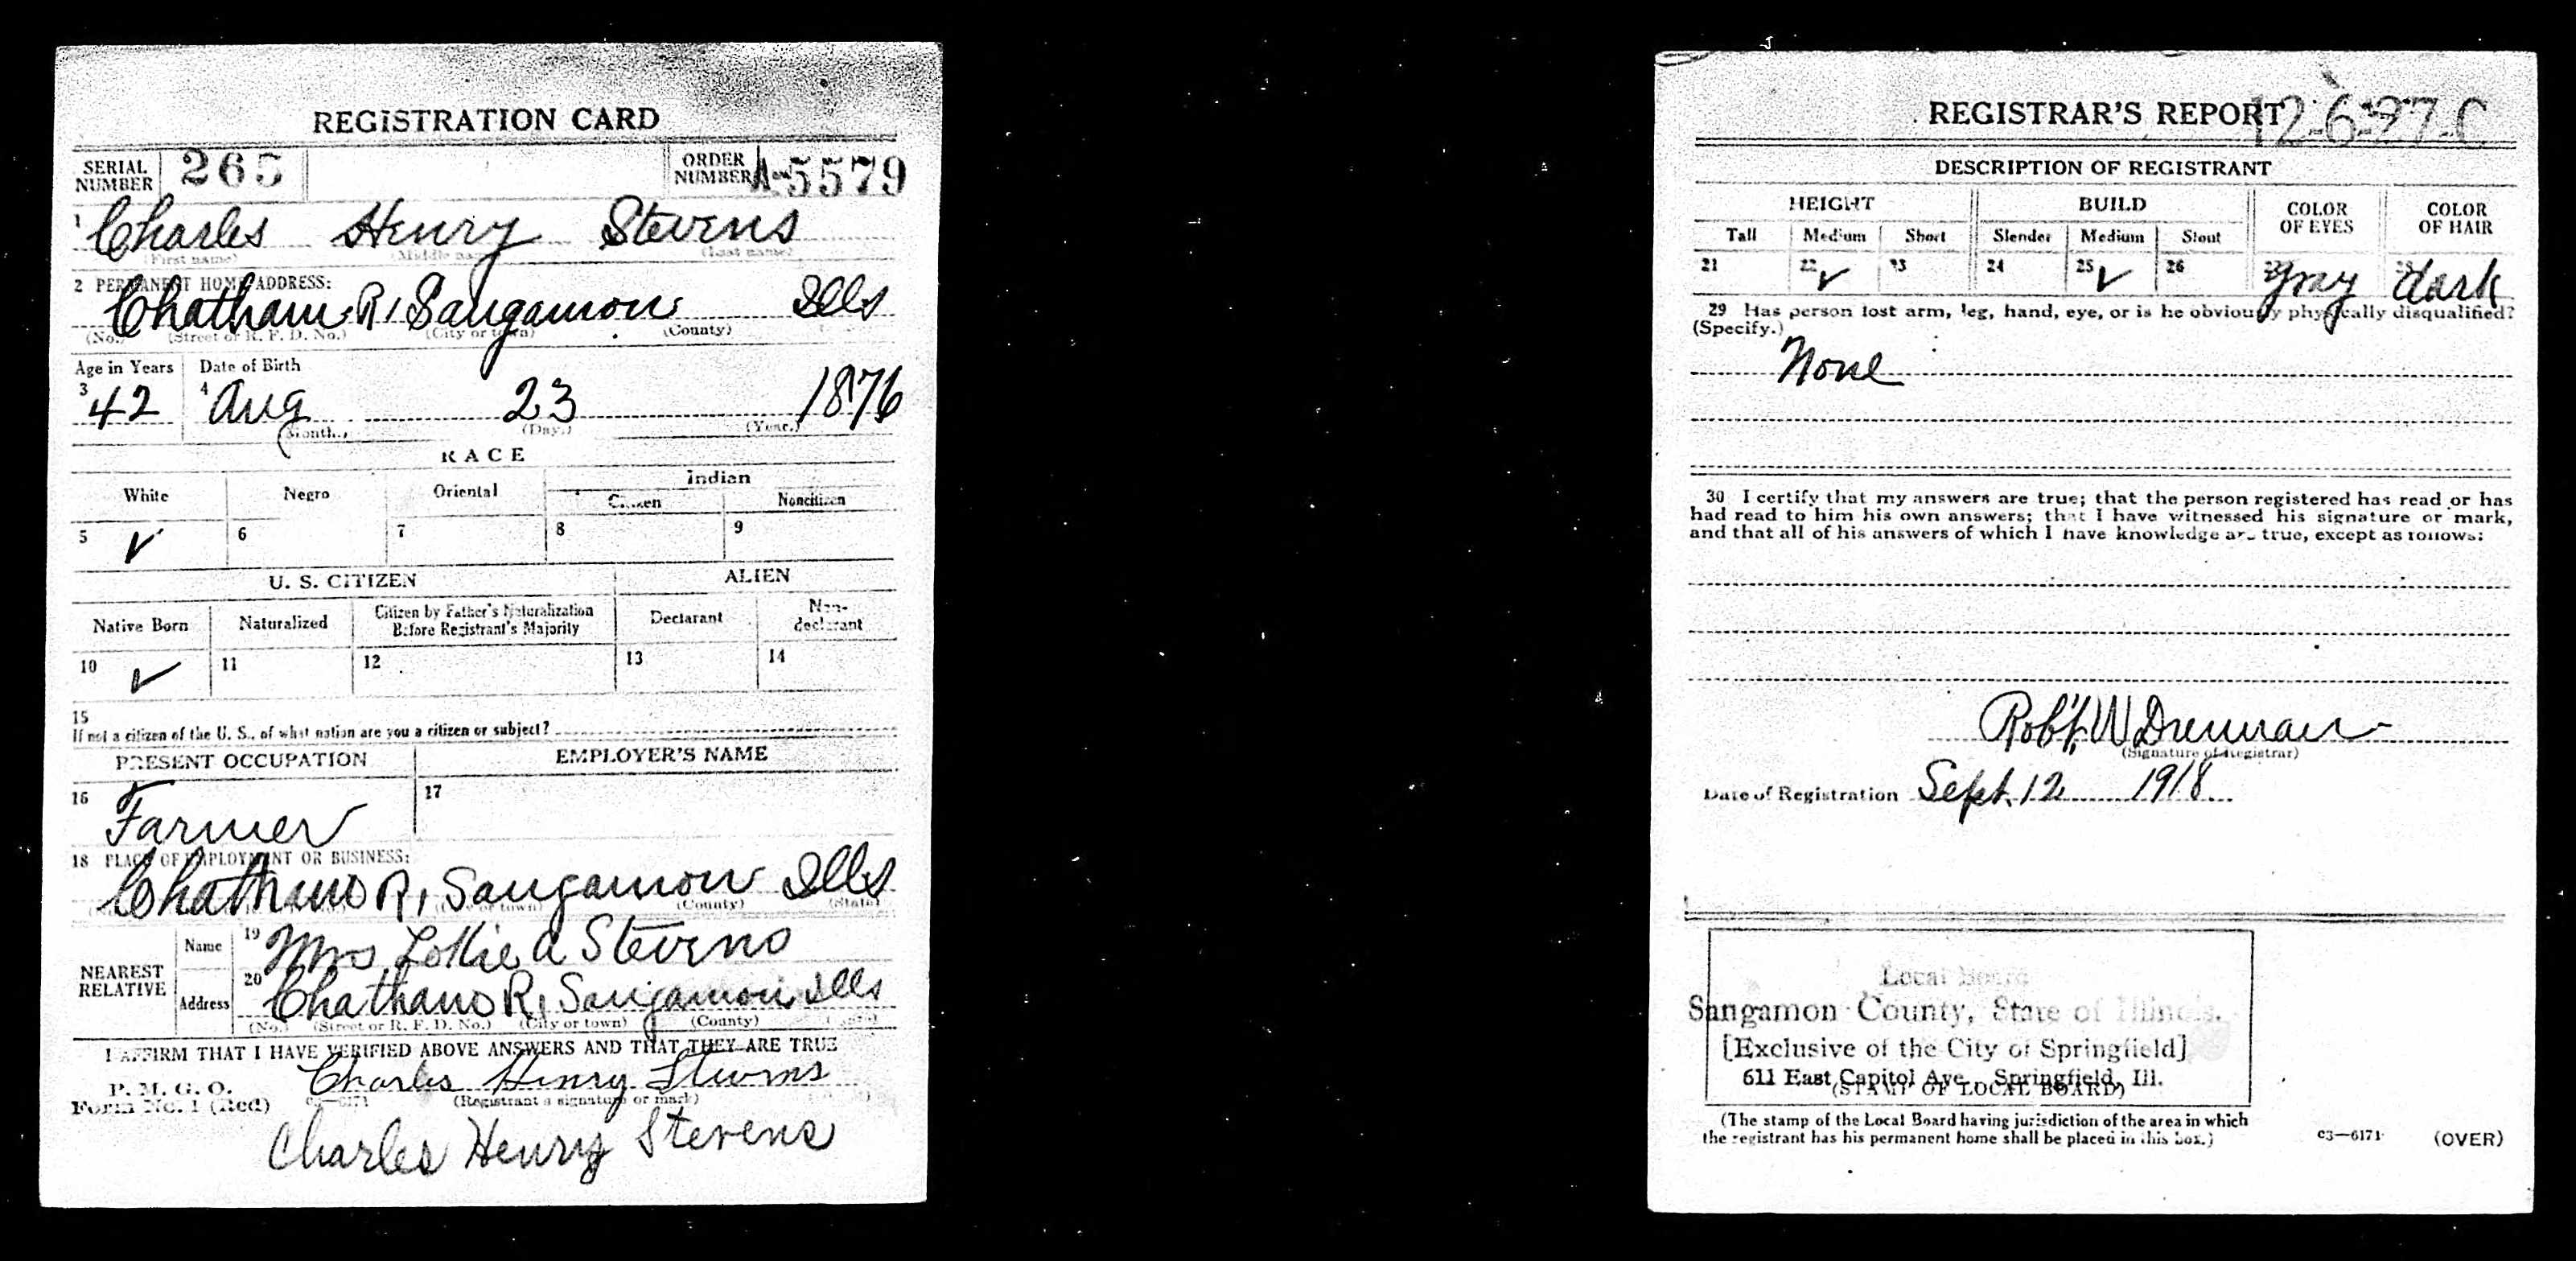 REGISTRATION CARD
SERIAL NUMBER 265
ORDER NUMBER A-5579
1 Charles Henry Stevens
(First name) (Middle name) (Last name)
2 PERMANENT HOME ADDRESS:
Chatham R1 Sangamon Ills
(No.) (Street or R. F. D. No.) (City or town) (County)
Age in Years Date of Birth
3 42 4 Aug 23 1876
(Month.) (Day.) (Year.)
RACE
White Negro Oriental Indian
Citizen Noncitizen
5 ✓ 6 7 8 9
U. S. CITIZEN ALIEN
Native Born Naturalized Citizen by Father's Naturalization Before Registrant's Majority Declarant Non-declarant
10 ✓ 11 12 13 14
15
If not a citizen of the U. S., of what nation are you a citizen or subject?
PRESENT OCCUPATION EMPLOYER'S NAME
16 Farmer 17
18 PLACE OF EMPLOYMENT OR BUSINESS:
Chatham R1 Sangamon Ills
(County) (State)
NEAREST RELATIVE
Name 19 Mrs Lottie A Stevens
Address 20 Chatham R1 Sangamon Ills
(No.) (Street or R. F. D. No.) (City or town) (County) (State)
I AFFIRM THAT I HAVE VERIFIED ABOVE ANSWERS AND THAT THEY ARE TRUE
P. M. G. O.
Form No. 1 (Red)
Charles Henry Stevens
(Registrant's signature or mark)
Charles Henry Stevens
REGISTRAR'S REPORT
DESCRIPTION OF REGISTRANT
HEIGHT BUILD COLOR OF EYES COLOR OF HAIR
Tall Medium Short Slender Medium Stout
21 22 ✓ 23 24 25 ✓ 26 gray dark
29 Has person lost arm, leg, hand, eye, or is he obviously physically disqualified?
(Specify.)
None
30 I certify that my answers are true; that the person registered has read or has
had read to him his own answers; that I have witnessed his signature or mark,
and that all of his answers of which I have knowledge are true, except as follows:
Rob't W Drennan
(Signature of Registrar)
Date of Registration Sept. 12 1918
Local Board
Sangamon County, State of Illinois.
[Exclusive of the City of Springfield]
611 East Capitol Ave., Springfield, Ill.
(STAMP OF LOCAL BOARD)
(The stamp of the Local Board having jurisdiction of the area in which
the registrant has his permanent home shall be placed in this box.)
c3—6171 (OVER)